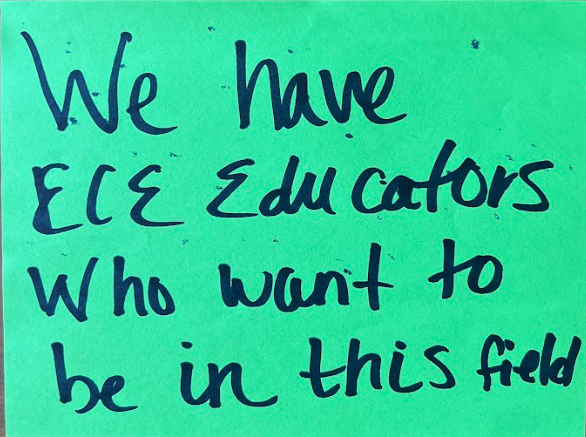 We have
ECE Educators
Who want to
be in this field